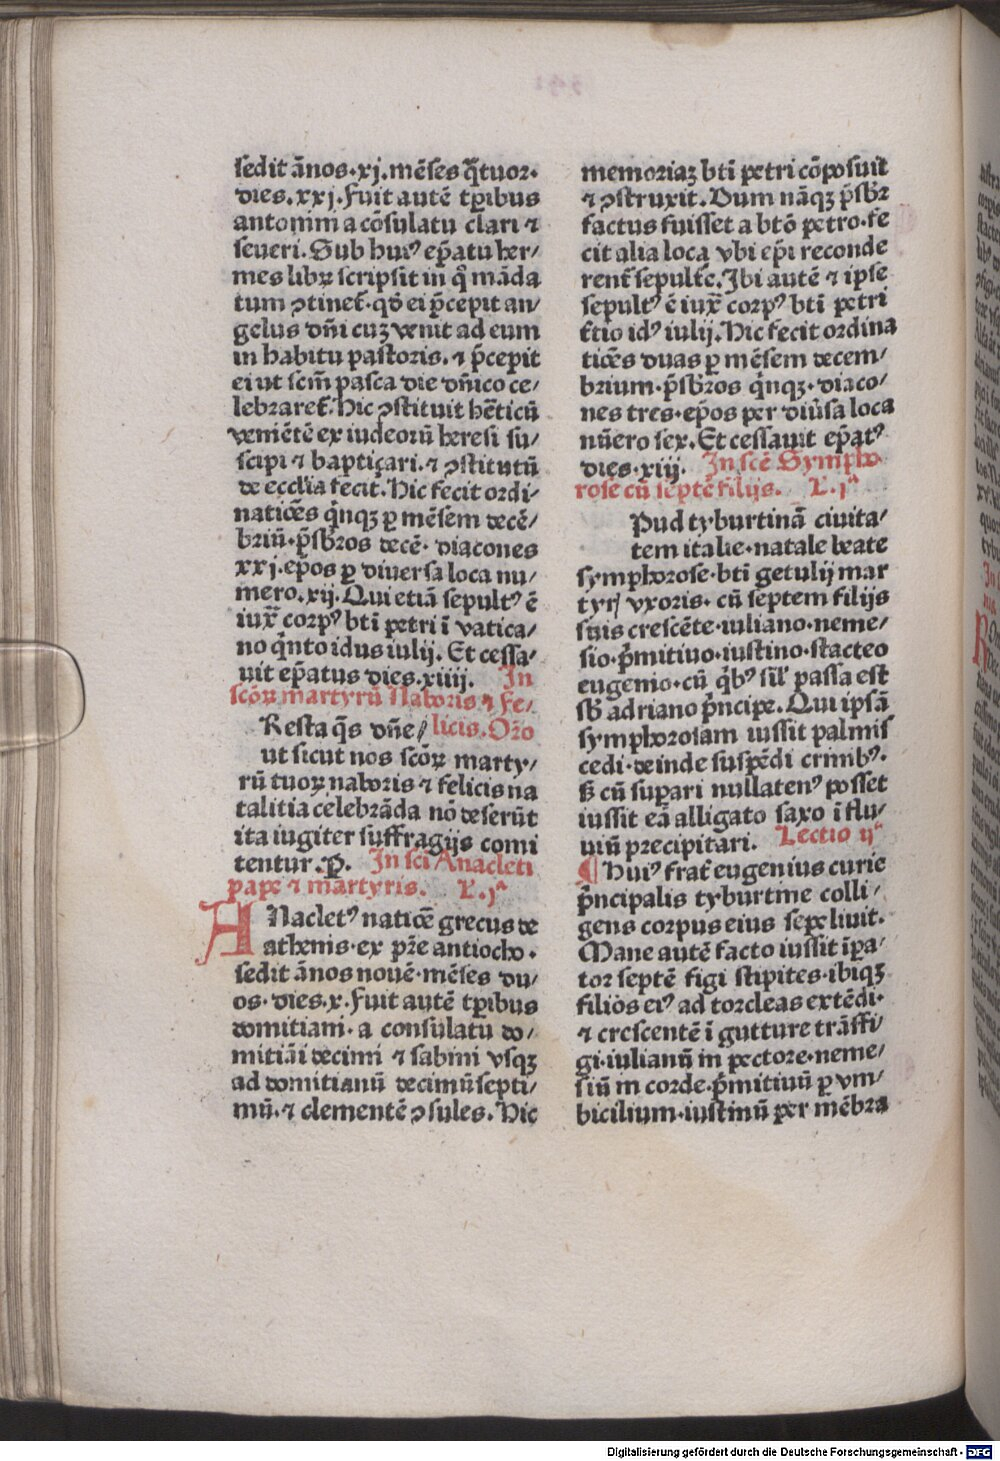 sedit ãnos.xj.mẽses q̃tuor.
dies.xxj.Fuit autẽ tꝑibus
antonini a cõsulatu clari ⁊
seueri.Sub huiꝰ ep̃atu her/
mes librꝝ scripsit in q̃ mãda
tum ꝯtinet᷑.qd̓ ei p̃cepit an/
gelus dñi cuꝫ venit ad eum
in habitu pastoris.⁊ p̃cepit
ei ut scm̃ pasca die dñico ce/
lebraret᷑.Hic ꝯstituit hẽticũ
veniẽtẽ ex iudeorũ heresi su/
scipi ⁊ baptiçari.⁊ ꝯstitutũ
de eccl̃ia fecit.Hic fecit ordi-
natiões q̃nqꝫ ꝑ mẽsem decẽ/
briũ.p̃sbr̃os decẽ. diacones
xxj.ep̃os ꝑ diuersa loca nu/
mero.xij.Qui etiã sepultꝰ ẽ
iux̃ corpꝰ bti̅ petri ĩ vatica/
no q̃nto idus iulij. Et cessa/
uit ep̃atus dies.xiiij. In
scõꝝ martyrũ Naboris ⁊ Fe/
Resta q̃s dñe/ licis.Oro̅
ut sicut nos scõꝝ marty/
rũ tuoꝝ naboris ⁊ felicis na
talitia celebrãda nõ deserũt
ita iugiter suffragijs comi
tentur.P̱. In sci̅ Anacleti
pape ⁊ martyris. L.jᵃ
ANacletꝰ natiõe grecus de
athenis.ex pr̃e antiocho.
sedit ãnos nouẽ.mẽses du/
os.dies.x.Fuit autẽ tꝑibus
domitiani.a consulatu do/
mitiãi decimi ⁊ sabini vsqꝫ
ad domitianũ decimũsepti/
mũ.⁊ clementẽ ꝯsules.Hic
memoriaꝫ bti̅ petri cõposuit
⁊ ꝯstruxit.Dum nãqꝫ p̃sbr̃
factus fuisset a btõ petro.fe
cit alia loca vbi ep̃i reconde
rent᷑ sepult᷑e.Ibi autẽ ⁊ ipse
sepultꝰ ẽ iux̃ corpꝰ bti̅ petri
t᷑tio idꝰ iulij.Hic fecit ordina
tiões duas ꝑ mẽsem decem/
brium.p̃sbr̃os q̃nqꝫ.diaco/
nes tres.ep̃os per diũsa loca
nũero sex.Et cessauit ep̃atꝰ
dies.xiij. In scẽ Sympho-
rose cũ septẽ filijs. L.jᵃ
Pud tyburtinã ciuita/
tem italie.natale beate
symphorose.bti̅ getulij mar
tyrꝭ vxoris. cũ septem filijs
suis crescẽte.iuliano.neme/
sio.p̃mitiuo.iustino.stacteo
eugenio.cũ q̃bꝰ sil̃ passa est
sb̃ adriano p̃ncipe.Qui ipsã
symphorosam iussit palmis
cedi.deinde suspẽdi crinibꝰ.
ẞ cũ suꝑari nullatenꝰ posset
iussit eã alligato saxo ĩ flu/
uiũ precipitari. Lectio ijᵃ
¶ Huiꝰ frat᷑ eugenius curie
p̃ncipalis tyburtine colli/
gens corpus eius sepeliuit.
Mane autẽ facto iussit ĩꝑa/
tor septẽ figi stipites.ibiqꝫ
filios eiꝰ ad torcleas extẽdi.
⁊ crescentẽ ĩ gutture trãsfi/
gi.iulianũ in pectore.neme/
siũ in corde.p̃mitiuũ ꝑ vm/
bicilium.iustinũ per mẽbra
Digitalisierung gefördert durch die Deutsche Forschungsgemeinschaft - DFG